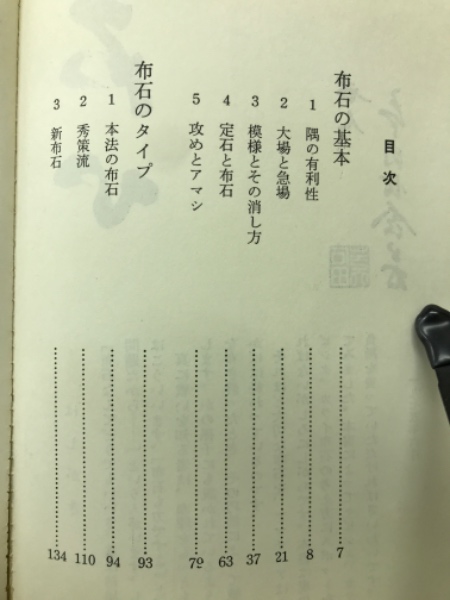 目次
布石の基本……7
1 隅の有利性……8
2 大場と急場……21
3 模様とその消し方……37
4 定石と布石……63
5 攻めとアマシ……79
布石のタイプ……93
1 本法の布石……94
2 秀策流……110
3 新布石……134